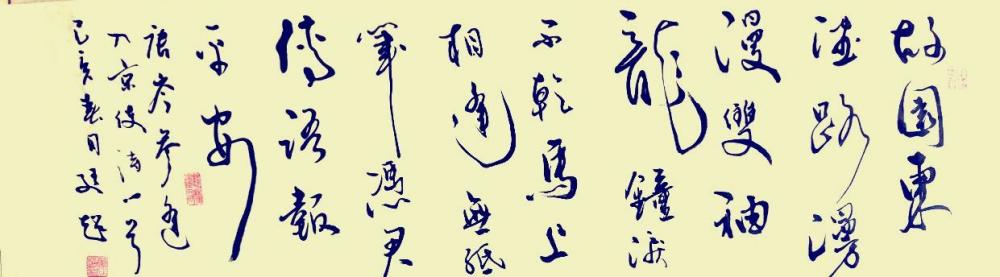 故園東
望路漫
漫雙袖
龍鐘淚
不乾馬上
相逢無紙
筆憑君
傳語報
平安
唐岑參逢
入京使詩一首
己亥春月